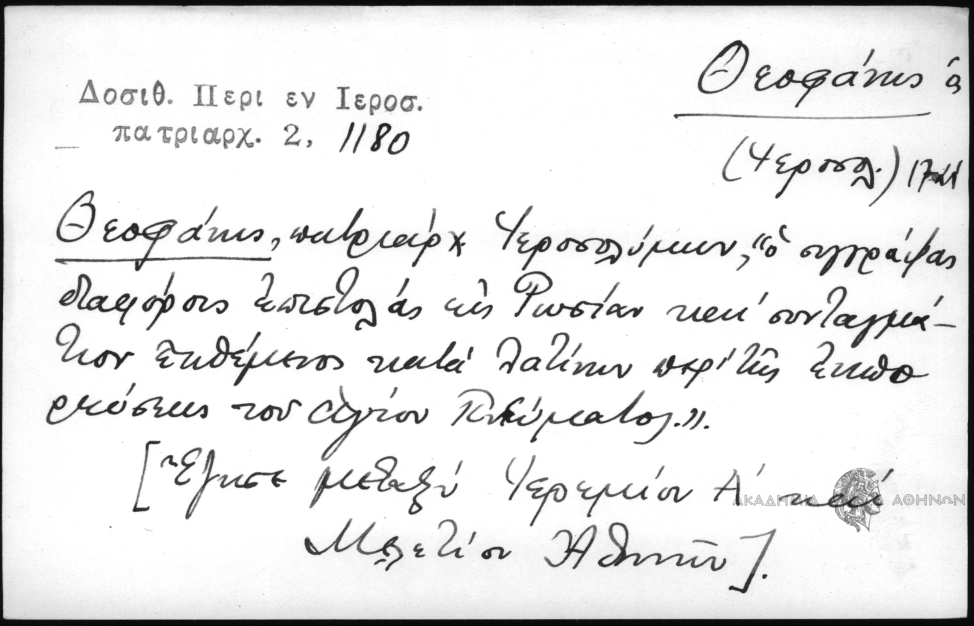 Θεοφάνης ὁ
Δοσιθ. Περι εν Ιεροσ.
πατριαρχ. 2, 1180
(Ἱεροσολ.)
Θεοφάνης, πατριάρχ Ἱεροσολύμων, "ὁ συγγράψας
διαφόρους ἐπιστολάς εἰς Ρωσίαν καί συνταγμά-
τιον ἐκθέμενος κατά Λατίνων περί τῆς ἐκπο
ρεύσεως τοῦ Ἁγίου Πνεύματος.".
[Ἔζησε μεταξύ Ἱερεμίου Α' καί
Μελετίου Ἀθηνῶν].
ΑΚΑΔΗΜΙΑ ΑΘΗΝΩΝ